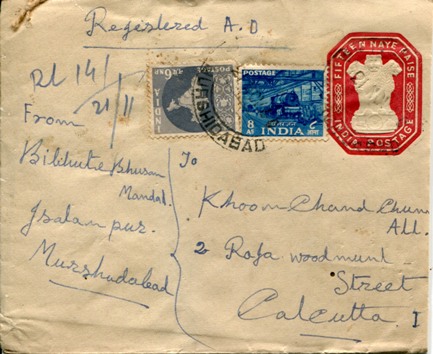 Registered A.D
Rl 14/
21/11
From
Bilihutie Bhusan
Mandal.
Islampur.
Murshadabad
INDIA
MURSHIDABAD
POSTAGE
8 AS
INDIA
FIFTEEN NAYE PAISE
INDIA POSTAGE
To
Khoom Chand Chuni
All.
2 Raja woodmunt
Street
Calcutta. I